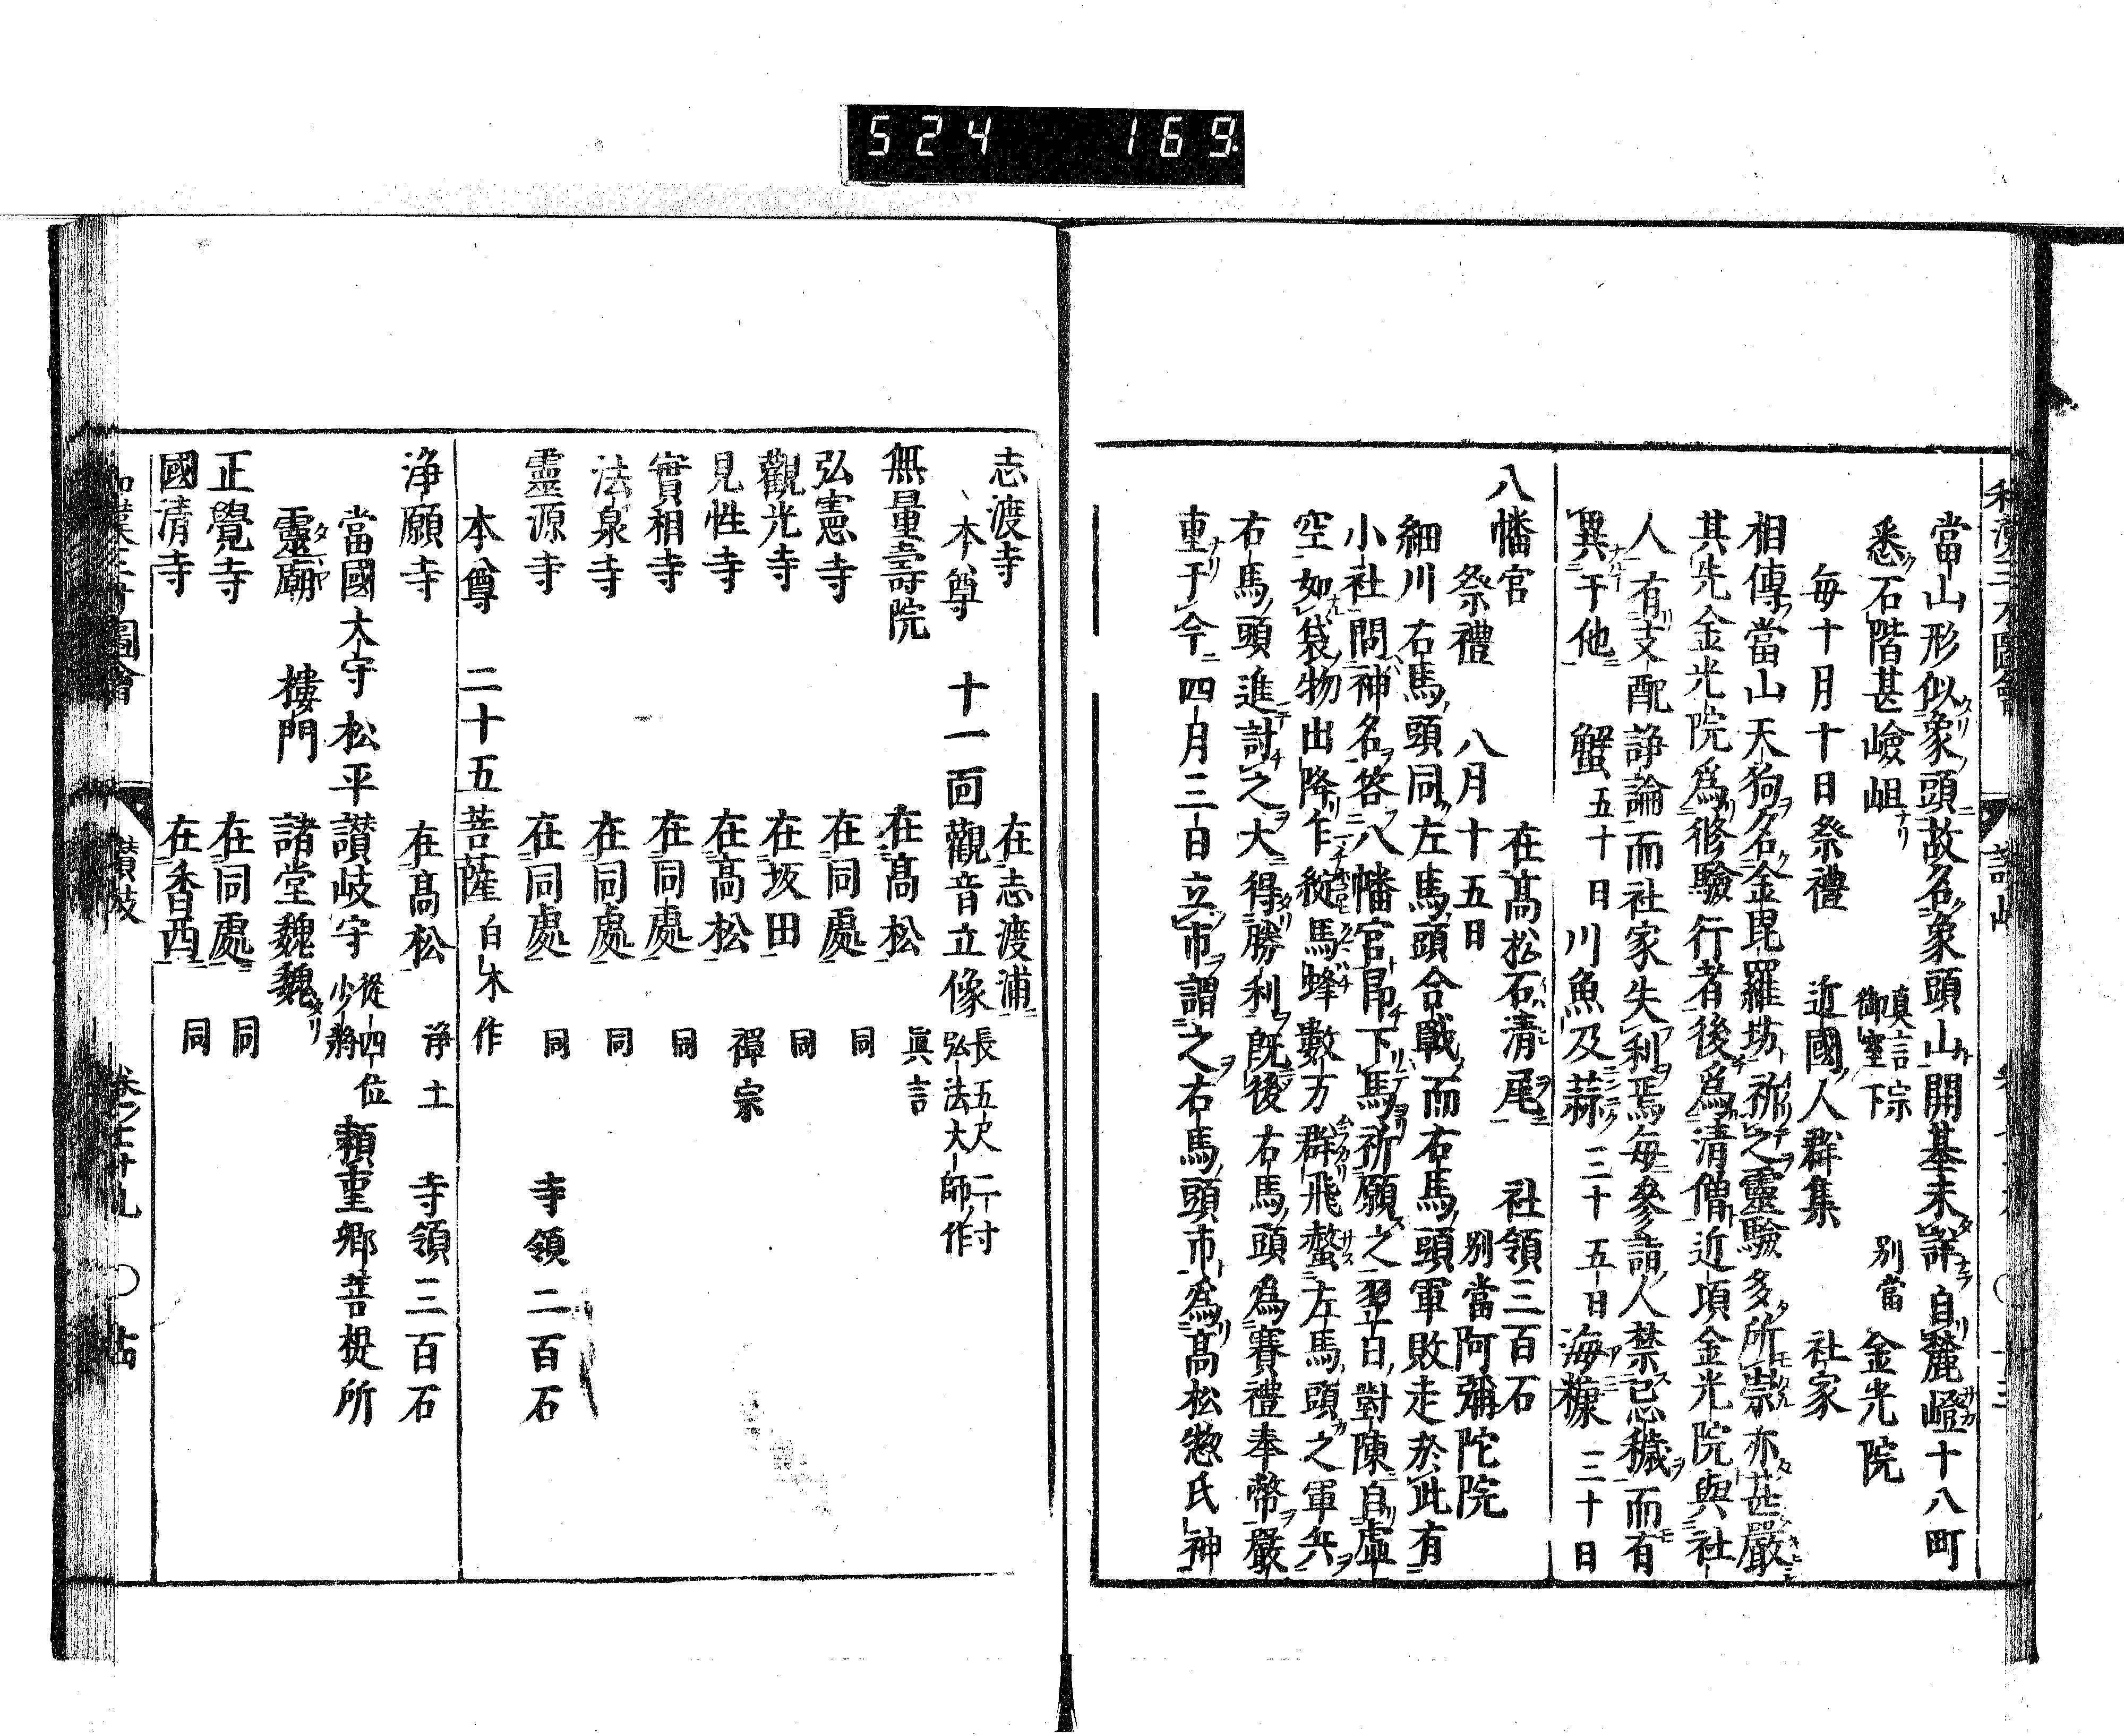 524 169
當山形似象頭故名象頭山開基未詳自麓嶝十八町
悉石階甚嶮岨 真言宗 御室下 別當 金光院
毎十月十日祭禮 近國人群集 社家
相傳當山天狗名金毘羅坊祈之靈驗多所祟亦甚嚴
其先金光院爲修驗行者後爲清僧近頃金光院與社
人有支配諍論而社家失利焉毎參詣人禁忌穢而有
異于他 蟹五十日川魚及蒜三十五日海糠三十日
八幡宮 在髙松石清尾 社領三百石
祭禮 八月十五日 別當阿彌陀院
細川右馬頭同左馬頭合戰而右馬頭軍敗走於此有
小社問神名答八幡宮昂下馬祈願之翌日對陳自虛
空如袋物出降乍綻馬蜂數万群飛螫左馬頭之軍兵
右馬頭進討之大得勝利既後右馬頭爲賽禮奉幣嚴
重于今四月三日立市謂之右馬頭市爲髙松惣氏神
志渡寺 在志渡浦
本尊 十一面觀音立像 長五尺二寸 弘法大師作
無量壽院 在髙松 眞言
弘憲寺 在同處 同
觀光寺 在坂田 同
見性寺 在髙松 禪宗
實相寺 在同處 同
法泉寺 在同處 同
靈源寺 在同處 同 寺領二百石
本尊 二十五菩薩 白木作
浄願寺 在髙松 淨土 寺領三百石
當國大守松平讃岐守 從四位少將 頼重郷菩提所
靈廟 樓門 諸堂魏魏
正覺寺 在同處 同
國清寺 在香西 同